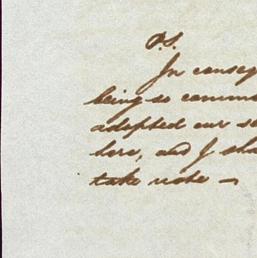 P.S.
In conseq
being so commo
adopted our s
here, and I sha
take note –